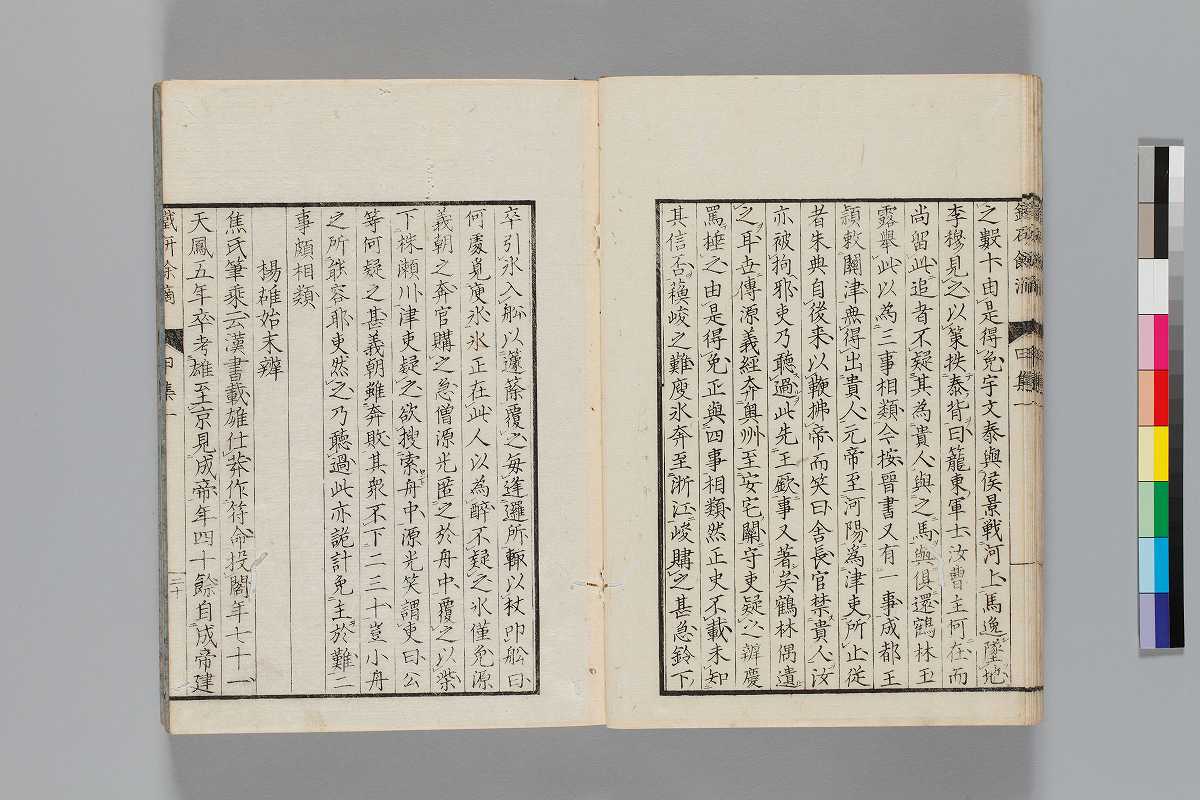 之數十由是得免宇文泰與侯景戰河上馬逸墜地
李穆見之以策抶泰背曰籠東軍士汝曹主何在而
尚留此追者不疑其為貴人與之馬與俱還鶴林玉
露舉此以為三事相類今按晉書又有一事成都王
頴敕關津無得出貴人元帝至河陽為津吏所止從
者朱典自後来以鞭拂帝而笑曰舍長官禁貴人汝
亦被拘邪吏乃聽過此先王歘事又著矣鶴林偶遺
之耳世傳源義經奔奥州至安宅關守吏疑之辨慶
罵捶之由是得免正與四事相類然正史不載未知
其信否蘓峻之難庾冰奔至浙江峻購之甚急鈴下
卒引冰入船以蘧蒢覆之每逢邏所輙以杖叩船曰
何處覓庾冰冰正在此人以為醉不疑之冰僅免源
義朝之奔官購之急僧源光匿之於舟中覆之以柴
下株瀬川津吏疑之欲搜索舟中源光笑謂吏曰公
等何疑之甚義朝雖奔敗其衆不下二三十豈小舟
之所能容耶吏然之乃聽過此亦詭計免主於難二
事頗相類
楊雄始末辨
焦氏筆乘云漢書載雄仕莽作符命投閣年七十一
天鳳五年卒考雄至京見成帝年四十餘自成帝建
鐵研余滴 田集一 二十